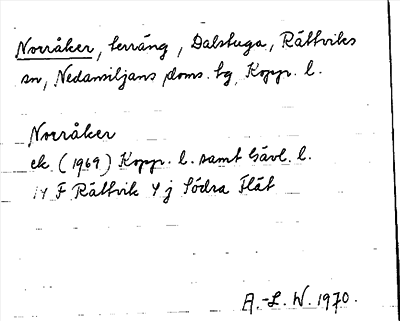 Norråker, terräng, Dalstuga, Rättviks
sn, Nedansiljans doms. tg, Kopp. l.
Norråker
ek. (1969) Kopp. l. samt Gävl. l.
14 F Rättvik 4 j Södra Flät
A.-L. W. 1970.